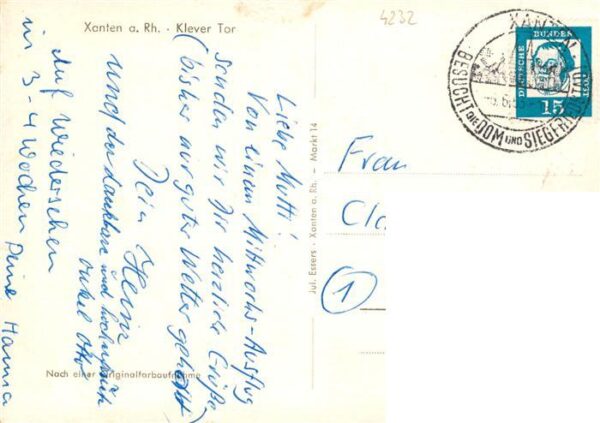 Xanten a. Rh. · Klever Tor
4232
Liebe Mutti!
Von einem Mittwochs-Ausflug
senden wir Dir herzliche Grüße
(bisher nur gutes Wetter gehabt)
Dein Heinz
und der dankbare und
Onkel Otto
Auf Wiedersehen
in 3-4 Wochen Deine Hanna
Nach einer Originalfarbaufnahme
Jul. Essers · Xanten a. Rh. – Markt 14
XANTEN
BESUCHT DIE DOM UND SIEGFRIED
DEUTSCHE
BUNDES
POST
15
Frau
Cla
1